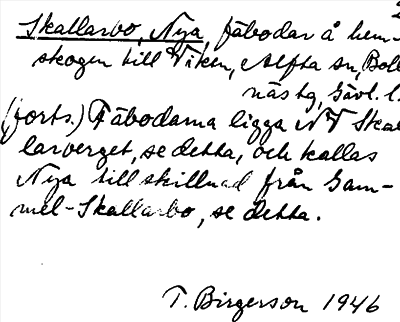 Skallarbo, Nya, fäbodar å hem-
skogen till Viken, Alfta sn, Boll
näs tg, Gävl. l.
(forts.) Fäbodarna ligga NV Skal
larberget, se detta, och kallas
Nya till skillnad från Gam-
mel-Skallarbo, se detta.
T. Birgerson 1946